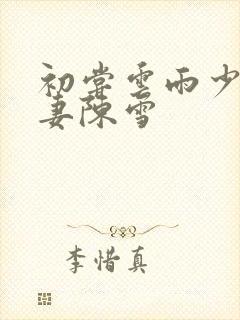 初尝雲雨少
妻陳雪
李惜真